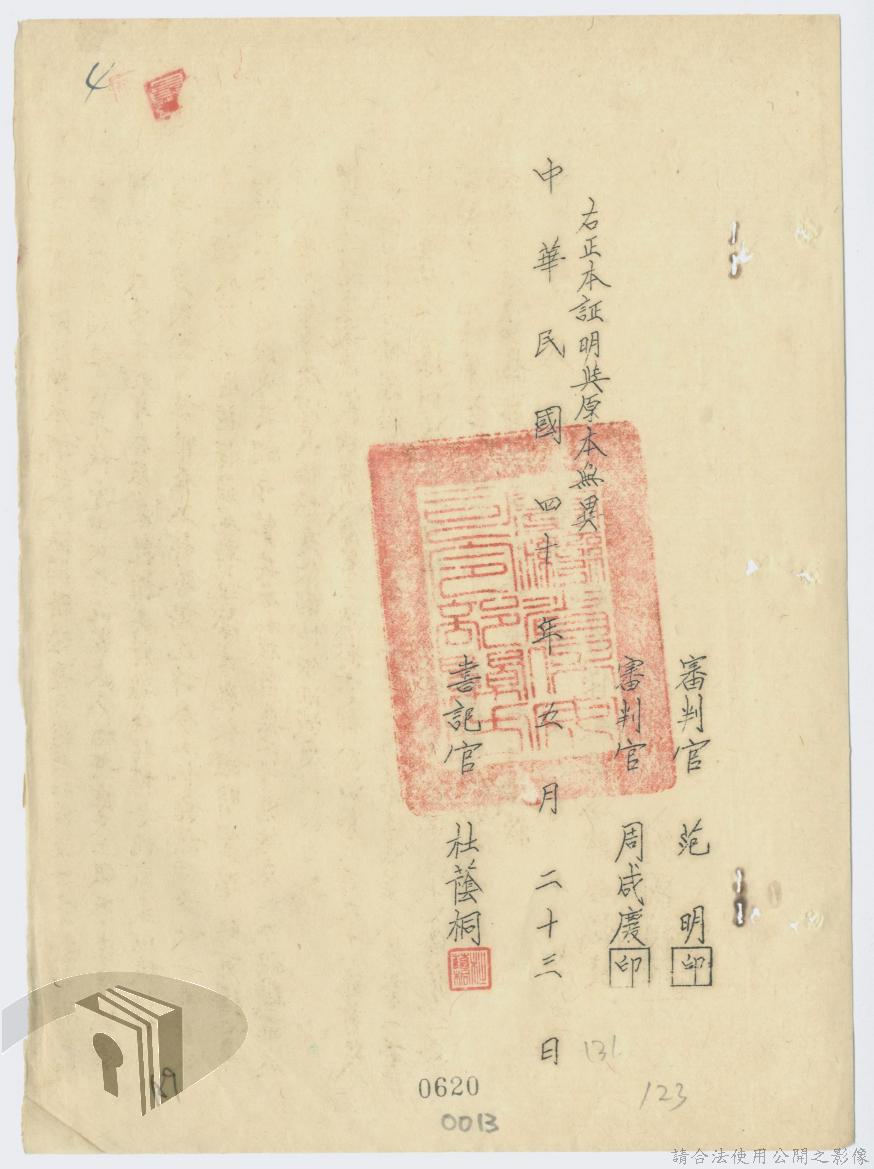 審判官 范明 印
審判官 周咸慶 印
右正本証明與原本無異
中華民國四十年五月二十三日
書記官 杜蔭桐
4
131
123
0620
0013
請合法使用公開之影像